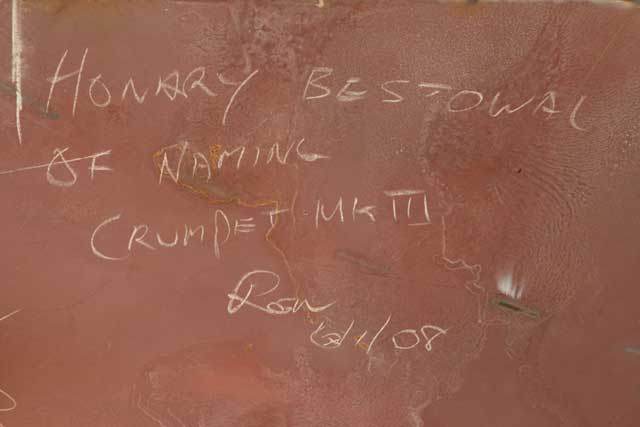 HONARY BESTOWAL
OF NAMING
CRUMPET MK III
Ron
6/1/08